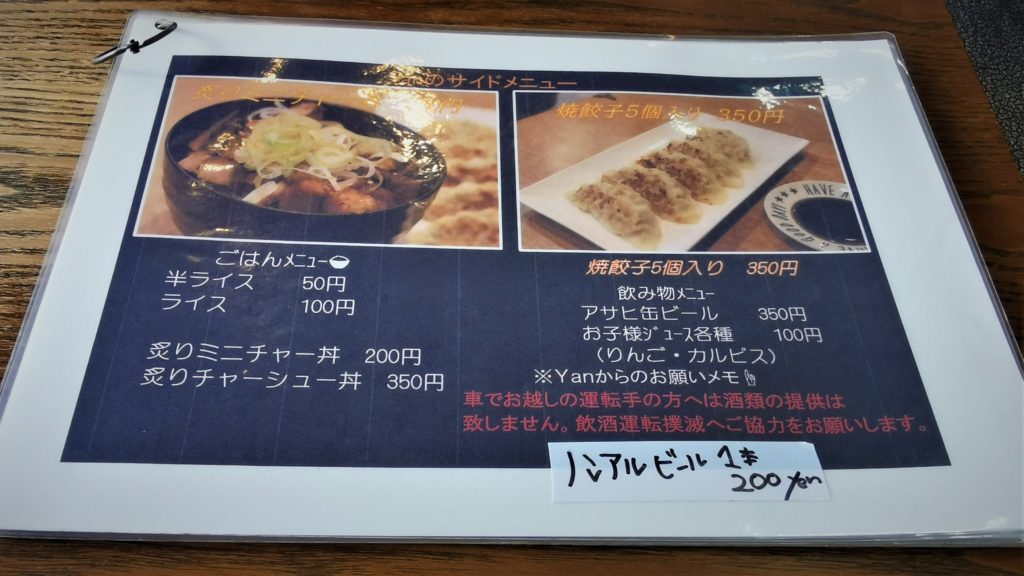 のサイドメニュー
炙りミニチャー丼 200円
焼餃子5個入り 350円
HAVE A GOOD DAY
ごはんメニュー
半ライス 50円
ライス 100円
炙りミニチャー丼 200円
炙りチャーシュー丼 350円
焼餃子5個入り 350円
飲み物メニュー
アサヒ缶ビール 350円
お子様ジュース各種 100円
(りんご・カルピス)
※Yanからのお願いメモ
車でお越しの運転手の方へは酒類の提供は
致しません。飲酒運転撲滅へご協力をお願いします。
ノンアルビール 1本
200 Yen